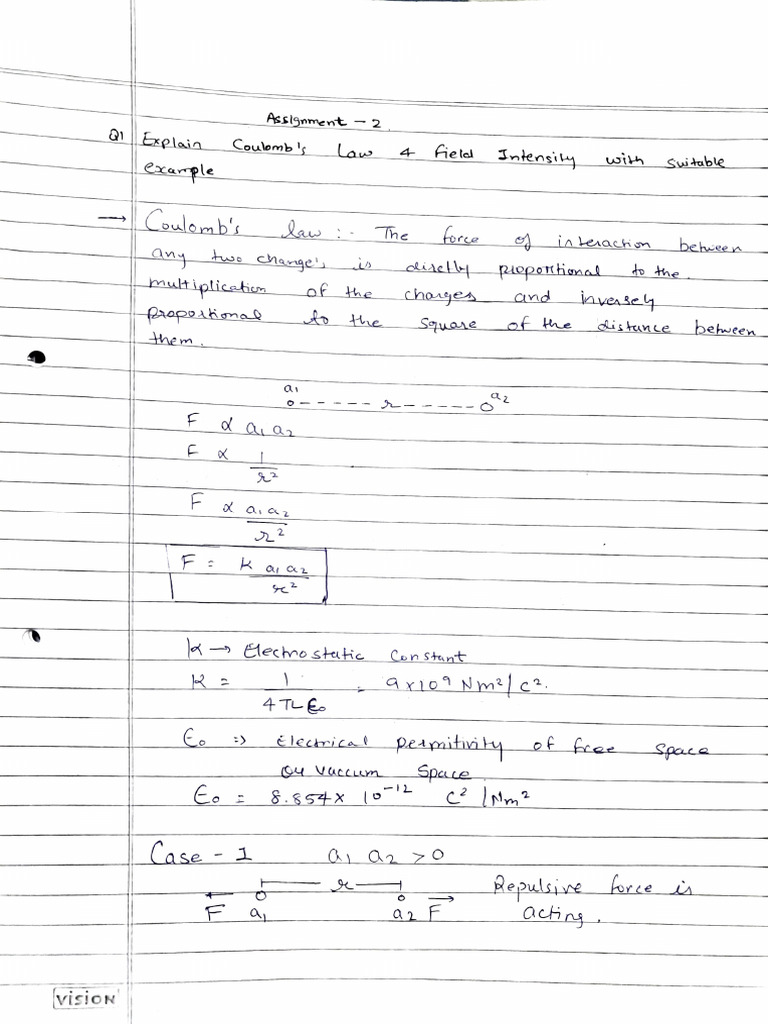 Assignment - 2.
Q1 Explain Coulomb's Law & Field Intensity with suitable
example
→ Coulomb's law :- The force of interaction between
any two change's is dirctly propotional to the.
multiplication of the charges and inversely
propostional to the square of the distance between
them.
a1 a2
o-----r-----o
F ∝ a1 a2
F ∝ 1/r²
F ∝ a1 a2/r²
F = K a1 a2/r²
K → Electrostatic Constant
K = 1/4πε0 = 9x10⁹ Nm²/C².
ε0 => Electrical permitivity of free space
or vaccum space
ε0 = 8.854 x 10⁻¹² C²/Nm²
Case - 1 a1 a2 > 0
r Repulsive force is
F a1 a2 F acting.
vision